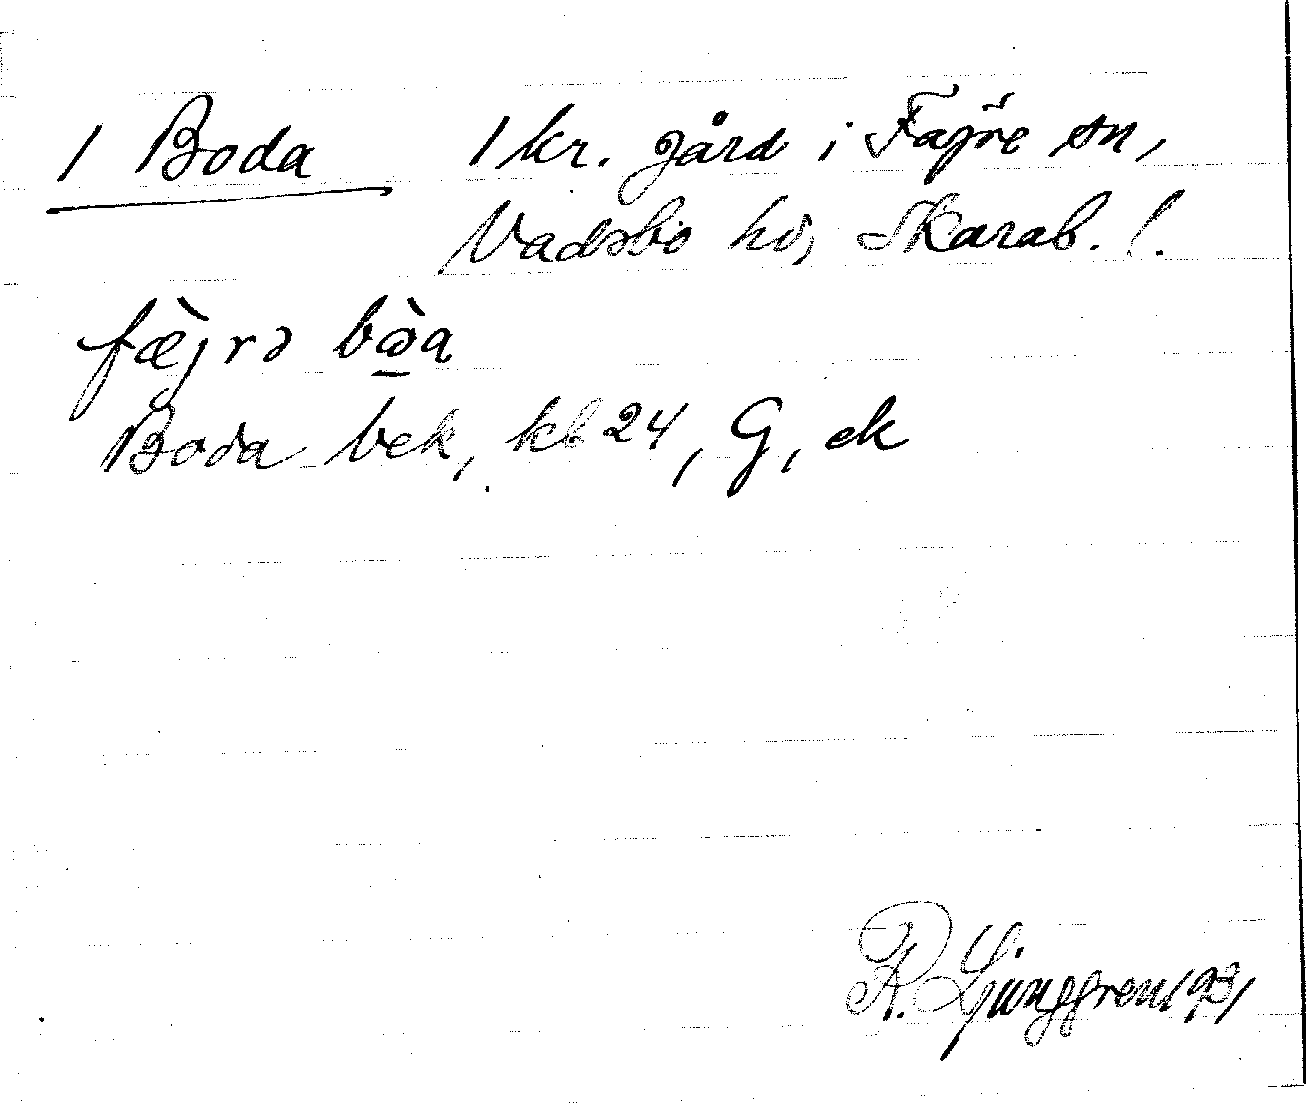 1 Boda 1 kr. gård i Fägre sn,
Vadsbo hd, Skarab. l.
fæ̀jrə bə̀a
Boda bek, kb 24, G, ek
R. Ljunggren 1931